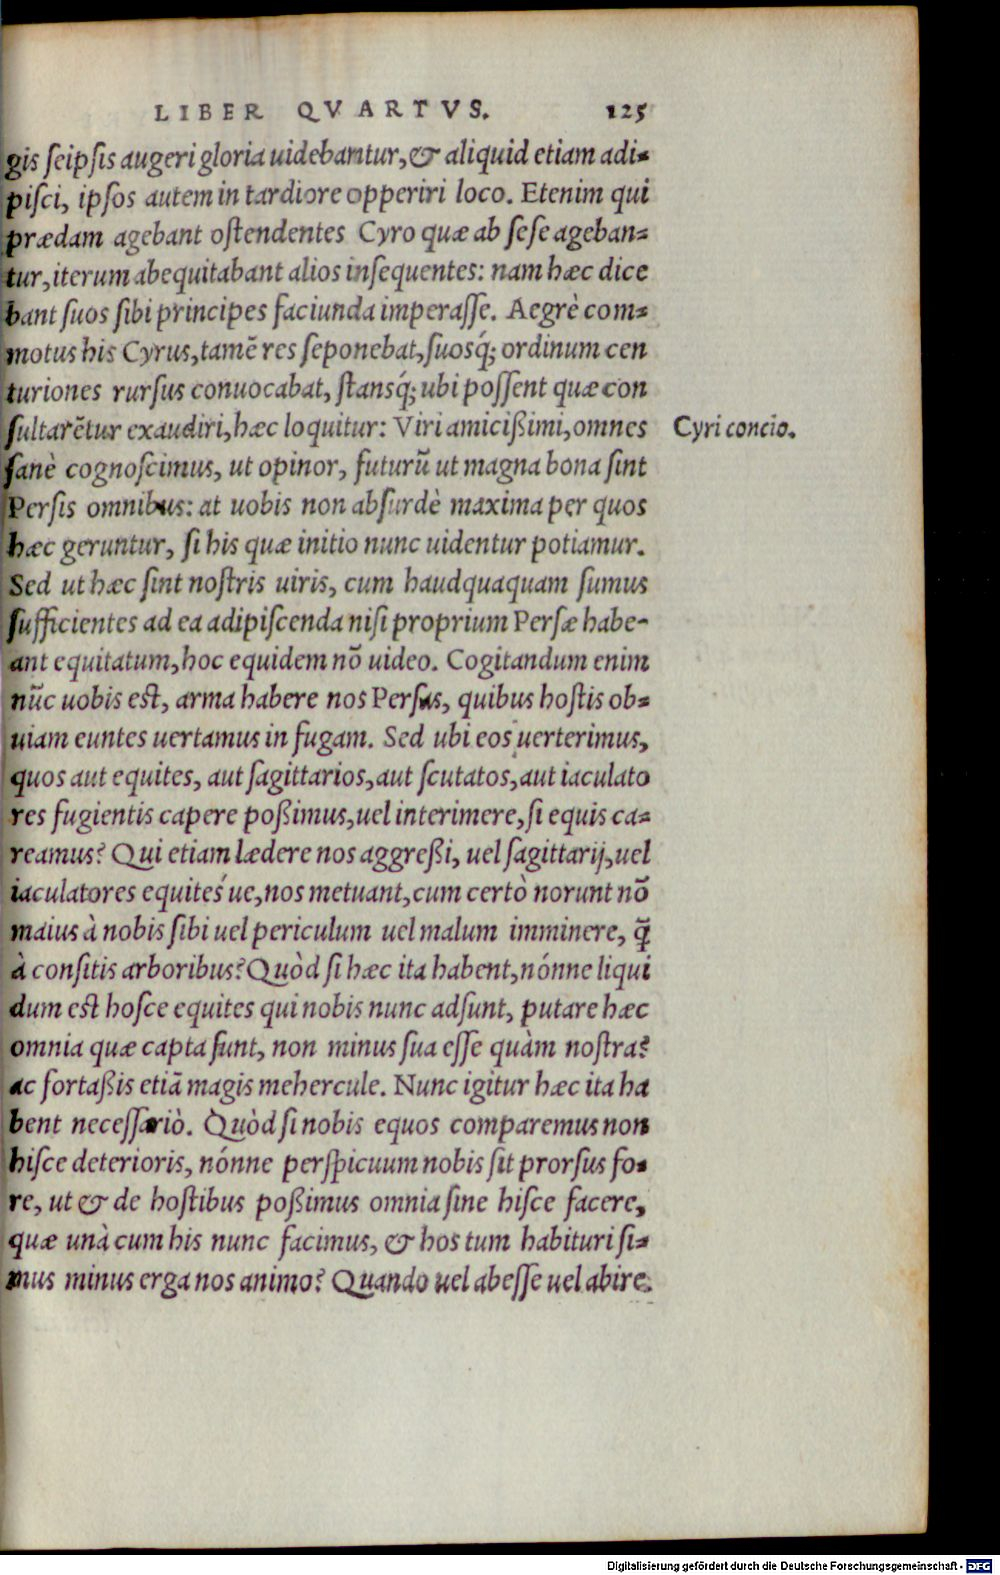 LIBER QVARTVS. 125
gis ſeipſis augeri gloria uidebantur, & aliquid etiam adi-
piſci, ipſos autem in tardiore opperiri loco. Etenim qui
prædam agebant oſtendentes Cyro quæ ab ſeſe ageban-
tur, iterum abequitabant alios inſequentes: nam hæc dice
bant ſuos ſibi principes faciunda imperaſſe. Aegrè com-
motus his Cyrus, tamē res ſeponebat, ſuosq́; ordinum cen
turiones rurſus conuocabat, ſtansq́; ubi poſſent quæ con
ſultarētur exaudiri, hæc loquitur: Viri amicißimi, omnes
Cyri concio.
ſanè cognoſcimus, ut opinor, futurū ut magna bona ſint
Perſis omnibus: at uobis non abſurdè maxima per quos
hæc geruntur, ſi his quæ initio nunc uidentur potiamur.
Sed ut hæc ſint noſtris uiris, cum haudquaquam ſumus
ſufficientes ad ea adipiſcenda niſi proprium Perſæ habe-
ant equitatum, hoc equidem nō uideo. Cogitandum enim
nūc uobis eſt, arma habere nos Perſas, quibus hoſtis ob-
uiam euntes uertamus in fugam. Sed ubi eos uerterimus,
quos aut equites, aut ſagittarios, aut ſcutatos, aut iaculato
res fugientis capere poßimus, uel interimere, ſi equis ca-
reamus? Qui etiam lædere nos aggreßi, uel ſagittarij, uel
iaculatores equiteś ue, nos metuant, cum certò norunt nō
maius à nobis ſibi uel periculum uel malum imminere, q̄̃
à conſitis arboribus? Quòd ſi hæc ita habent, nónne liqui
dum eſt hoſce equites qui nobis nunc adſunt, putare hæc
omnia quæ capta ſunt, non minus ſua eſſe quàm noſtra?
ac fortaßis etiā magis mehercule. Nunc igitur hæc ita ha
bent neceſſariò. Quòd ſi nobis equos comparemus non
hiſce deterioris, nónne perſpicuum nobis ſit prorſus fo-
re, ut & de hoſtibus poßimus omnia ſine hiſce facere,
quæ unà cum his nunc facimus, & hos tum habituri ſi-
mus minus erga nos animo? Quando uel abeſſe uel abire
Digitalisierung gefördert durch die Deutsche Forschungsgemeinschaft - DFG